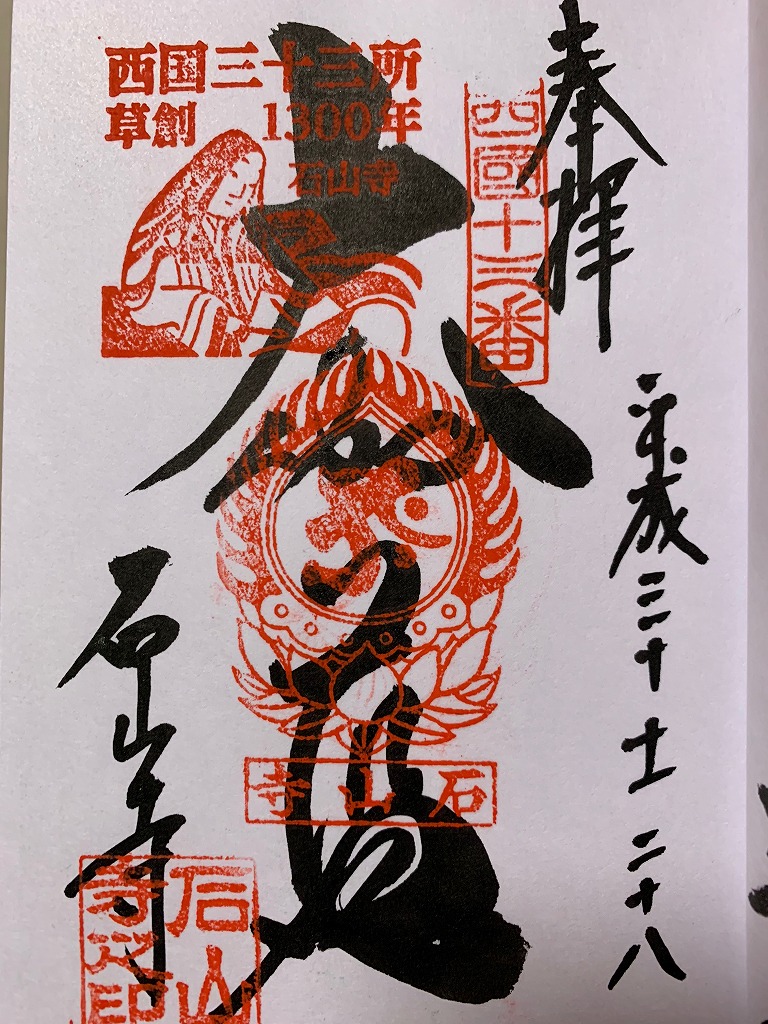 奉拝
平成三十 十一 二十八
西国十三番
西国三十三所
草創 1300年
石山寺
大伽藍
石山寺
石山寺
石山寺之印